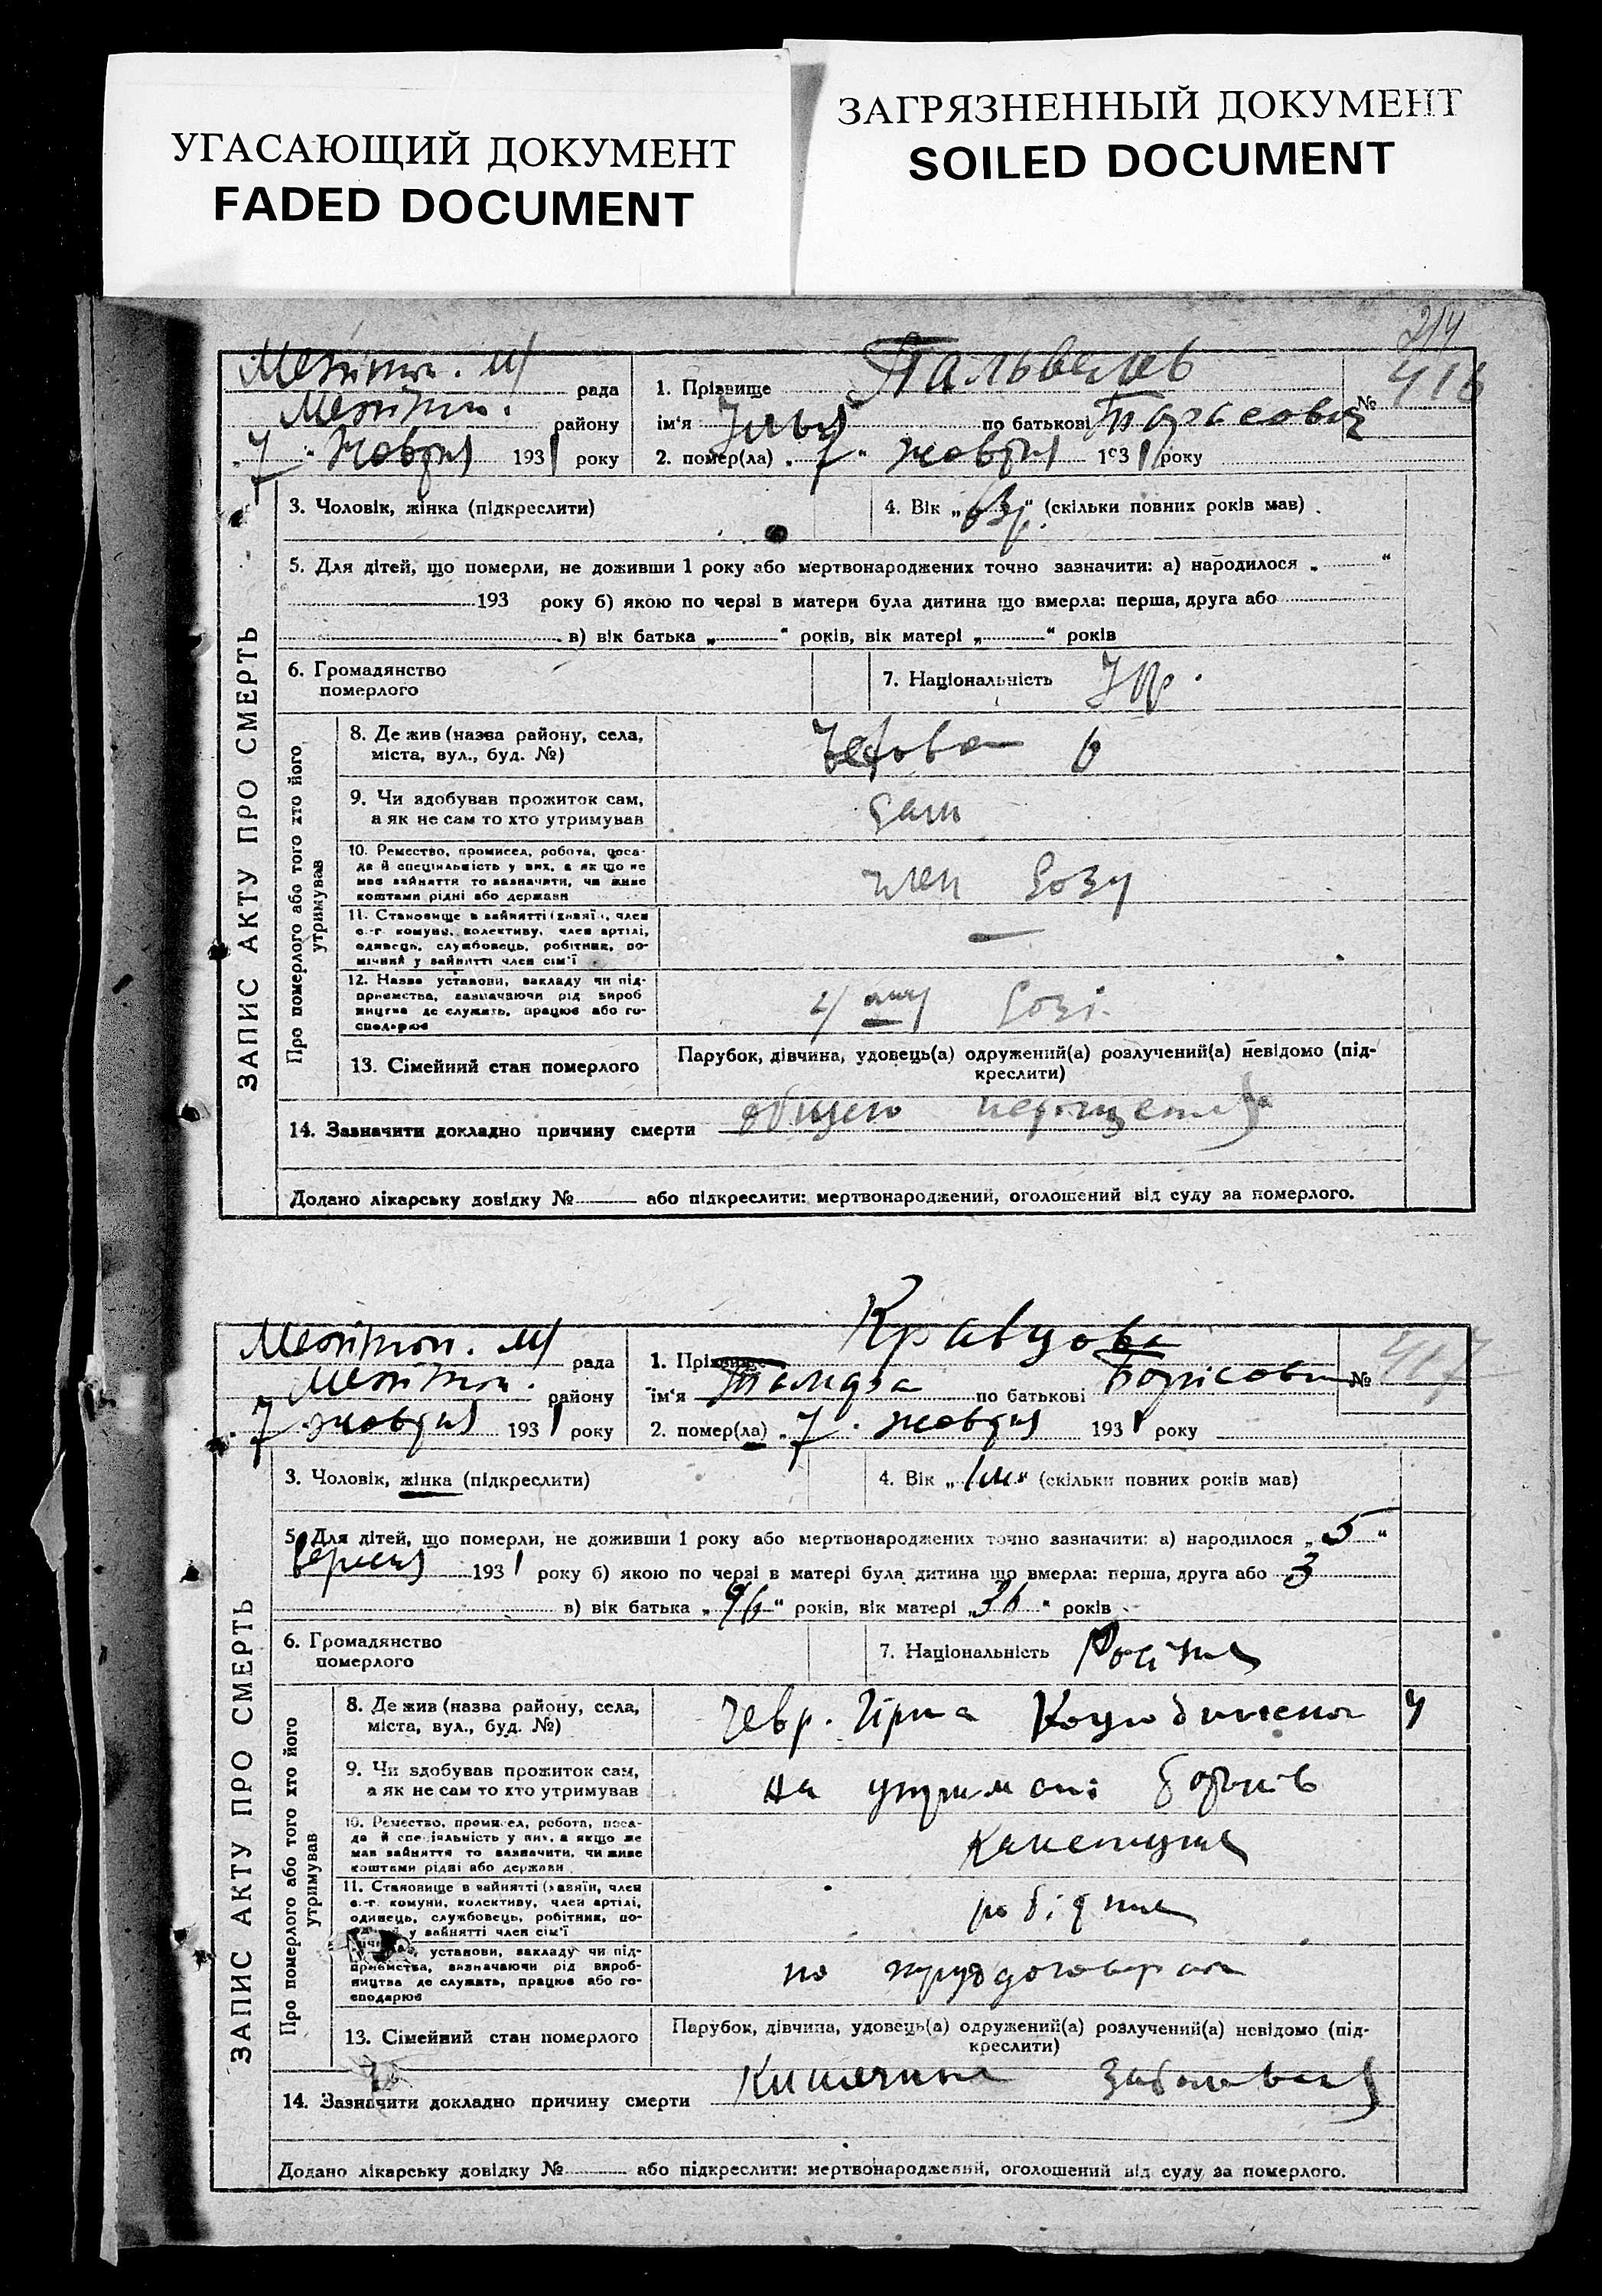 УГАСАЮЩИЙ ДОКУМЕНТ
FADED DOCUMENT
ЗАГРЯЗНЕННЫЙ ДОКУМЕНТ
SOILED DOCUMENT
рада
району
"7" Жовтня 1931 року
1. Прізвище
№ 416
ім'я Ілья по батькові Тарасович
2. помер(ла) "7" жовтня 1931 року
ЗАПИС АКТУ ПРО СМЕРТЬ
3. Чоловік, жінка (підкреслити)
4. Вік „63р." (скільки повних років мав)
5. Для дітей, що померли, не доживши 1 року або мертвонароджених точно зазначити: а) народилося „ “
193 року б) якою по черзі в матери була дитина що вмерла: перша, друга або
в) вік батька „ “ років, вік матері „ “ років
6. Громадянство
померлого
7. Національність Укр.
Про померлого або того хто його
утримував
8. Де жив (назва району, села,
міста, вул., буд. №)
6
9. Чи здобував прожиток сам,
а як не сам то хто утримував
сам
10. Ремество, промисел, робота, поса-
да й спеціяльність у них, а як що не
мав зайняття то зазначити, чи живе
коштами рідні або держави
член Созу
11. Становище в зайнятті (хазяїн, член
с.-г. комуни, колективу, член артілі,
одинець, службовець, робітник, по-
мічний у зайнятті член сім'ї
—
12. Назва установи, закладу чи під-
приємства, зазначаючи рід вироб
ництва де служить, працює або го-
сподарює
Созі
13. Сімейний стан померлого
Парубок, дівчина, удовець(а) одружений(а) розлучений(а) невідомо (під-
креслити)
14. Зазначити докладно причину смерти
Додано лікарську довідку № або підкреслити: мертвонароджений, оголошений від суду за померлого.
рада
району
7 жовтня 1931 року
1. Прізвище Кравцова
№ 417
ім'я Тамара по батькові Борисовн
2. помер(ла) „7" жовтня 1931 року
ЗАПИС АКТУ ПРО СМЕРТЬ
3. Чоловік, жінка (підкреслити)
4. Вік „1м“ (скільки повних років мав)
5. Для дітей, що померли, не доживши 1 року або мертвонароджених точно зазначити: а) народилося „5“
вересня 1931 року б) якою по черзі в матері була дитина що вмерла: перша, друга або 3
в) вік батька „46“ років, вік матері „36“ років
6. Громадянство
померлого
7. Національність
Про померлого або того хто його
утримував
8. Де жив (назва району, села,
міста, вул., буд. №)
Черв. Гірка Коцюбинского 4
9. Чи здобував прожиток сам,
а як не сам то хто утримував
на утримані батьків
10. Ремество, промисел, робота, поса-
да й спеціяльність у них, а якщо не
мав зайняття то зазначити, чи живе
коштами рідні або держави
11. Становище в зайнятті (хазяїн, член
с.-г. комуни, колективу, член артілі,
одинець, службовець, робітник, по-
у зайнятті член сім'ї
установи, закладу чи під-
приємства, зазначаючи рід вироб-
ництва де служить, працює або го-
сподарює
по труддоговорам
13. Сімейний стан померлого
Парубок, дівчина, удовець(а) одружений(а) розлучений(а) невідомо (під-
креслити)
14. Зазначити докладно причину смерти
Додано лікарську довідку № або підкреслити: мертвонароджений, оголошений від суду за померлого.